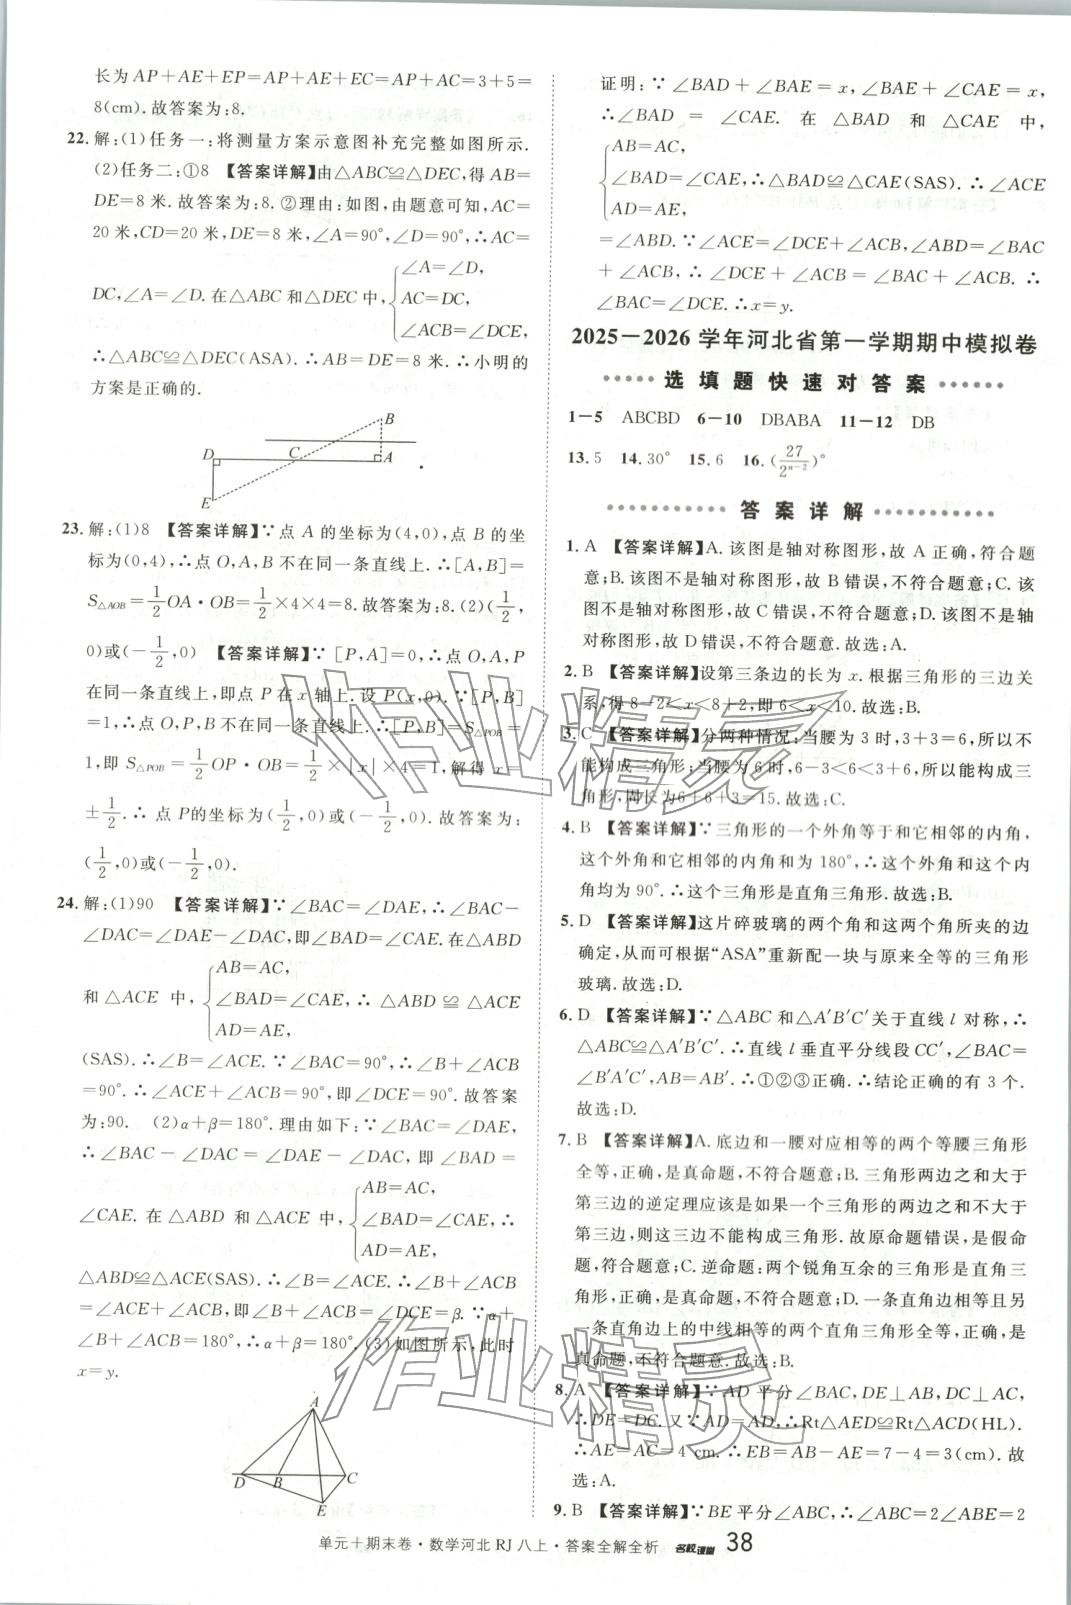 长为 AP+AE+EP=AP+AE+EC=AP+AC=3+5=
8(cm). 故答案为:8.
22. 解:(1)任务一:将测量方案示意图补充完整如图所示.
(2)任务二:①8 【答案详解】由△ABC≌△DEC,得 AB=
DE=8 米. 故答案为:8. ②理由:如图,由题意可知,AC=
20 米,CD=20 米,DE=8 米,∠A=90°,∠D=90°,∴AC=
DC,∠A=∠D. 在△ABC 和△DEC 中, {∠A=∠D,
AC=DC,
∠ACB=∠DCE,
∴△ABC≌△DEC(ASA). ∴AB=DE=8 米. ∴小明的
方案是正确的.
B
D C A
E
23. 解:(1)8 【答案详解】∵点 A 的坐标为(4,0),点 B 的坐
标为(0,4),∴点 O,A,B 不在同一条直线上. ∴[A,B]=
S△AOB=1/2 OA·OB=1/2×4×4=8. 故答案为:8. (2)(1/2,
0)或(-1/2,0) 【答案详解】∵[P,A]=0,∴点 O,A,P
在同一条直线上,即点 P 在 x 轴上. 设 P(x,0). ∵[P,B]
=1,∴点 O,P,B 不在同一条直线上. ∴[P,B]=S△POB=
1,即 S△POB=1/2 OP·OB=1/2×|x|×4=1,解得 x=
±1/2. ∴点 P 的坐标为(1/2,0)或(-1/2,0). 故答案为:
(1/2,0)或(-1/2,0).
24. 解:(1)90 【答案详解】∵∠BAC=∠DAE,∴∠BAC-
∠DAC=∠DAE-∠DAC,即∠BAD=∠CAE. 在△ABD
和△ACE 中, {AB=AC,
∠BAD=∠CAE,∴△ABD≌△ACE
AD=AE,
(SAS). ∴∠B=∠ACE. ∵∠BAC=90°,∴∠B+∠ACB
=90°. ∴∠ACE+∠ACB=90°,即∠DCE=90°. 故答案
为:90. (2)α+β=180°. 理由如下:∵∠BAC=∠DAE,
∴∠BAC-∠DAC=∠DAE-∠DAC,即∠BAD=
∠CAE. 在△ABD 和△ACE 中, {AB=AC,
∠BAD=∠CAE,∴
AD=AE,
△ABD≌△ACE(SAS). ∴∠B=∠ACE. ∴∠B+∠ACB
=∠ACE+∠ACB,即∠B+∠ACB=∠DCE=β. ∵α+
∠B+∠ACB=180°,∴α+β=180°. (3)如图所示,此时
x=y.
A
D B C
E
证明:∵∠BAD+∠BAE=x,∠BAE+∠CAE=x,
∴∠BAD=∠CAE. 在△BAD 和△CAE 中,
{AB=AC,
∠BAD=∠CAE,∴△BAD≌△CAE(SAS). ∴∠ACE
AD=AE,
=∠ABD. ∵∠ACE=∠DCE+∠ACB,∠ABD=∠BAC
+∠ACB,∴∠DCE+∠ACB=∠BAC+∠ACB. ∴
∠BAC=∠DCE. ∴x=y.
2025-2026 学年河北省第一学期期中模拟卷
选填题快速对答案
1-5 ABCBD 6-10 DBABA 11-12 DB
13. 5 14. 30° 15. 6 16. (27/2ⁿ⁻²)°
答案详解
1. A 【答案详解】A. 该图是轴对称图形,故 A 正确,符合题
意;B. 该图不是轴对称图形,故 B 错误,不符合题意;C. 该
图不是轴对称图形,故 C 错误,不符合题意;D. 该图不是轴
对称图形,故 D 错误,不符合题意. 故选:A.
2. B 【答案详解】设第三条边的长为 x. 根据三角形的三边关
系,得 8-2<x<8+2,即 6<x<10. 故选:B.
3. C 【答案详解】分两种情况:当腰为 3 时,3+3=6,所以不
能构成三角形;当腰为 6 时,6-3<6<3+6,所以能构成三
角形,周长为 6+6+3=15. 故选:C.
4. B 【答案详解】∵三角形的一个外角等于和它相邻的内角,
这个外角和它相邻的内角和为 180°,∴这个外角和这个内
角均为 90°. ∴这个三角形是直角三角形. 故选:B.
5. D 【答案详解】这片碎玻璃的两个角和这两个角所夹的边
确定,从而可根据“ASA”重新配一块与原来全等的三角形
玻璃. 故选:D.
6. D 【答案详解】∵△ABC 和△A′B′C′关于直线 l 对称,∴
△ABC≌△A′B′C′. ∴直线 l 垂直平分线段 CC′,∠BAC=
∠B′A′C′,AB=AB′. ∴①②③正确. ∴结论正确的有 3 个.
故选:D.
7. B 【答案详解】A. 底边和一腰对应相等的两个等腰三角形
全等,正确,是真命题,不符合题意;B. 三角形两边之和大于
第三边的逆定理应该是如果一个三角形的两边之和不大于
第三边,则这三边不能构成三角形. 故原命题错误,是假命
题,符合题意;C. 逆命题:两个锐角互余的三角形是直角三
角形,正确,是真命题,不符合题意;D. 一条直角边相等且另
一条直角边上的中线相等的两个直角三角形全等,正确,是
真命题,不符合题意. 故选:B.
8. A 【答案详解】∵AD 平分∠BAC,DE⊥AB,DC⊥AC,
∴DE=DC. 又∵AD=AD,∴Rt△AED≌Rt△ACD(HL).
∴AE=AC=4 cm. ∴EB=AB-AE=7-4=3(cm). 故
选:A.
9. B 【答案详解】∵BE 平分∠ABC,∴∠ABC=2∠ABE=2
单元+期末卷·数学河北 RJ 八上·答案全解全析 名校课堂 38
作业精灵
作业精灵